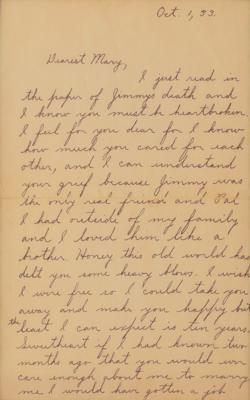 Oct. 1, 33.
Dearest Mary,
I just read in
the paper of Jimmys death and
I know you must be heartbroken.
I feel for you dear for I know
how much you cared for each
other, and I can understand
your grief because Jimmy was
the only real friend and Pal
I had outside of my family
and I loved him like a
brother. Honey this old world has
delt you some heavy blows. I wish
I were free so I could take you
away and make you happy but
the least I can expect is ten years.
Sweetheart if I had known two
months ago that you would
care enough about me to marry
me I would have gotten a job